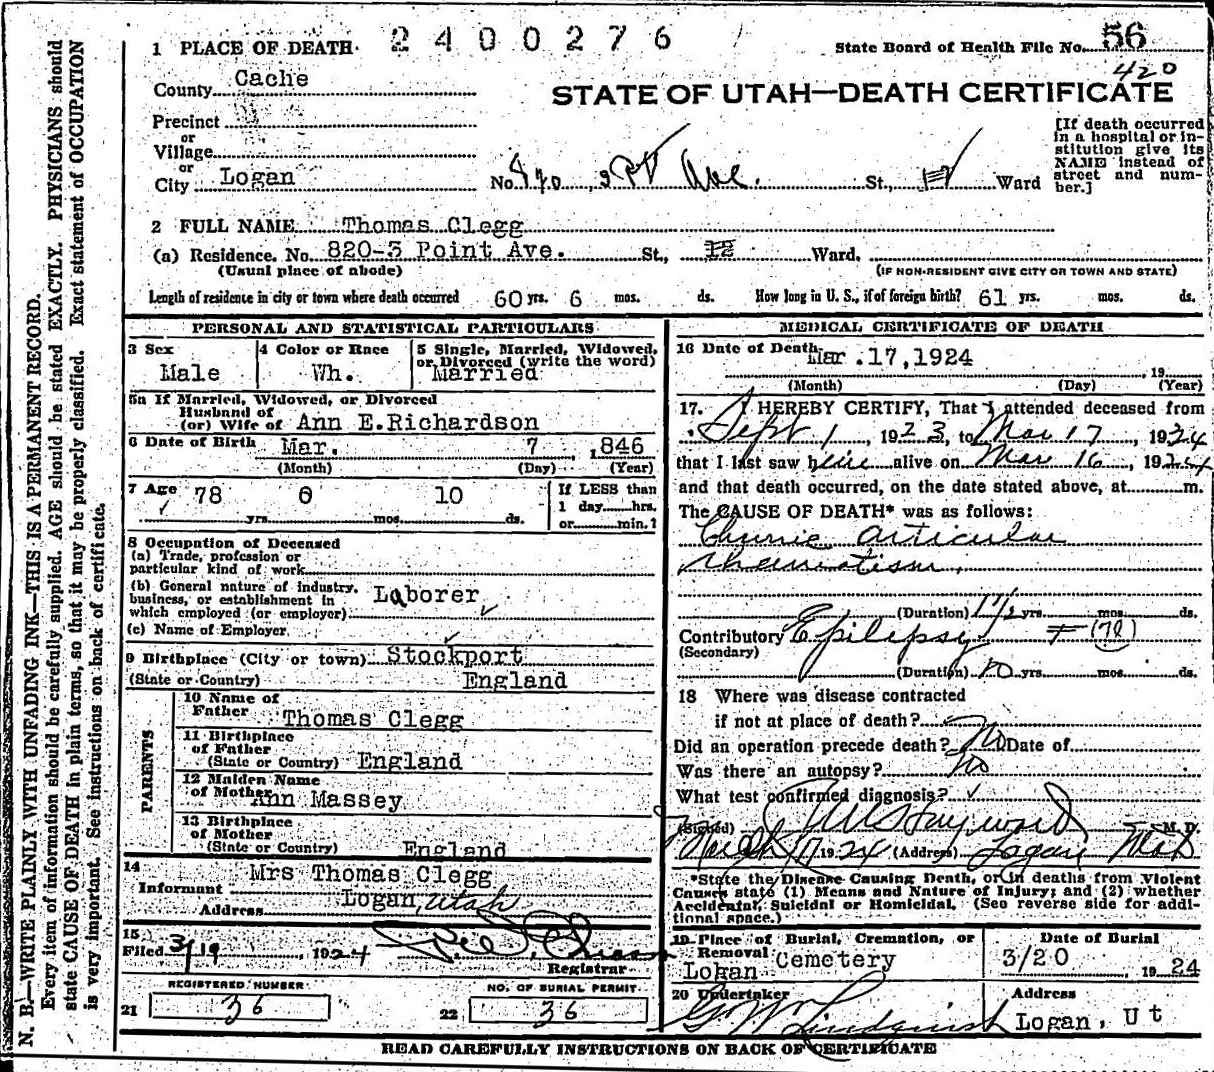 2400276
1 PLACE OF DEATH
State Board of Health File No. 56
County Cache
420
STATE OF UTAH—DEATH CERTIFICATE
Precinct
or
Village
or
City Logan
No. St., Ward
[If death occurred in a hospital or in-
stitution give its
NAME instead of
street and num-
ber.]
2 FULL NAME Thomas Clegg
(a) Residence. No. 820-3 Point Ave. St., 12 Ward.
(Usual place of abode)
(IF NON-RESIDENT GIVE CITY OR TOWN AND STATE)
Length of residence in city or town where death occurred 60 yrs. 6 mos. ds. How long in U. S., if of foreign birth? 61 yrs. mos. ds.
PERSONAL AND STATISTICAL PARTICULARS
3 Sex
Male
4 Color or Race
Wh.
5 Single, Married, Widowed,
or Divorced (write the word)
Married
5a If Married, Widowed, or Divorced
Husband of
(or) Wife of Ann E.Richardson
6 Date of Birth Mar. 7 , 1846
(Month) (Day) (Year)
7 Age 78 0 10
yrs. mos. ds.
If LESS than
1 day......hrs.
or......min.?
8 Occupation of Deceased
(a) Trade, profession or
particular kind of work
(b) General nature of industry,
business, or establishment in
which employed (or employer) Laborer
(c) Name of Employer
9 Birthplace (City or town) Stockport
(State or Country) England
PARENTS
10 Name of
Father Thomas Clegg
11 Birthplace
of Father
(State or Country) England
12 Maiden Name
of Mother Ann Massey
13 Birthplace
of Mother
(State or Country) England
14
Informant Mrs Thomas Clegg
Address Logan, Utah
15
Filed 3/19, 1924
Registrar
REGISTERED NUMBER
21 36
NO. OF BURIAL PERMIT
22 36
MEDICAL CERTIFICATE OF DEATH
16 Date of Death Mar.17,1924
, 19
(Month) (Day) (Year)
17. I HEREBY CERTIFY, That I attended deceased from
Sept 1, 1923, to Mar 17, 1924
that I last saw him alive on Mar 16, 1924
and that death occurred, on the date stated above, at m.
The CAUSE OF DEATH* was as follows:
Chronic articular
rheumatism.
(Duration) 1 1/2 yrs. mos. ds.
Contributory Epilepsy
(Secondary)
(Duration) yrs. mos. ds.
18 Where was disease contracted
if not at place of death?
Did an operation precede death? No Date of
Was there an autopsy? No
What test confirmed diagnosis?
(Signed) Hayward M. D.
March 17 1924 (Address) Logan
*State the Disease Causing Death, or in deaths from Violent
Causes state (1) Means and Nature of Injury; and (2) whether
Accidental, Suicidal or Homicidal. (See reverse side for addi-
tional space.)
19 Place of Burial, Cremation, or
Removal
Logan Cemetery
Date of Burial
3/20 1924
20 Undertaker
G W Lindquist
Address
Logan, Ut
READ CAREFULLY INSTRUCTIONS ON BACK OF CERTIFICATE
N. B.—WRITE PLAINLY WITH UNFADING INK—THIS IS A PERMANENT RECORD.
Every item of information should be carefully supplied. AGE should be stated EXACTLY. PHYSICIANS should
state CAUSE OF DEATH in plain terms, so that it may be properly classified. Exact statement of OCCUPATION
is very important. See instructions on back of certificate.